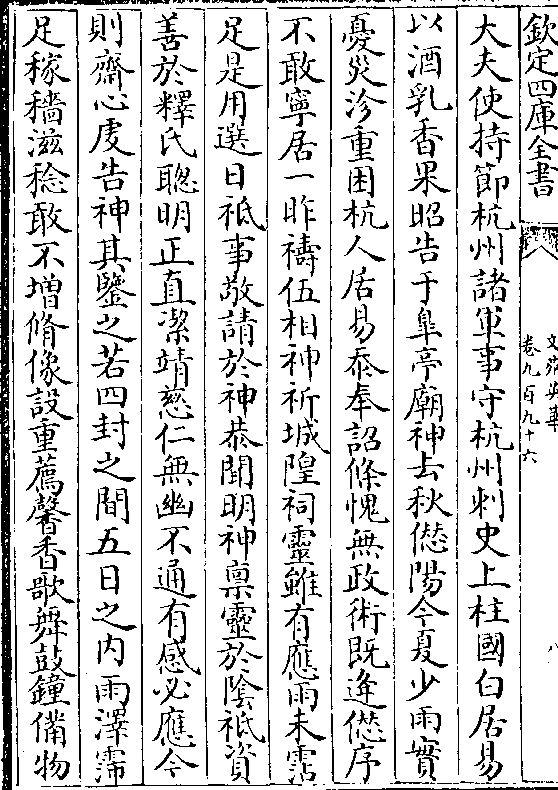 欽定四庫全書
文苑英華
卷九百九十六
八
大夫使持節杭州諸軍事守杭州刺史上柱國白居易
以酒乳香果昭告于臯亭廟神去秋愆陽今夏少雨實
憂災沴重困杭人居易忝奉詔條愧無政術既逢愆序
不敢寧居一昨禱伍相神祈城隍祠靈雖有應雨未霑
足是用選日祗事敬請於神恭聞明神禀靈於陰祗資
善於釋氏聰明正直潔靖慈仁無幽不通有感必應今
則齋心䖍告神其鑒之若四封之間五日之内雨澤霈
足稼穡滋稔敢不增脩像設重薦馨香歌舞鼓鐘備物